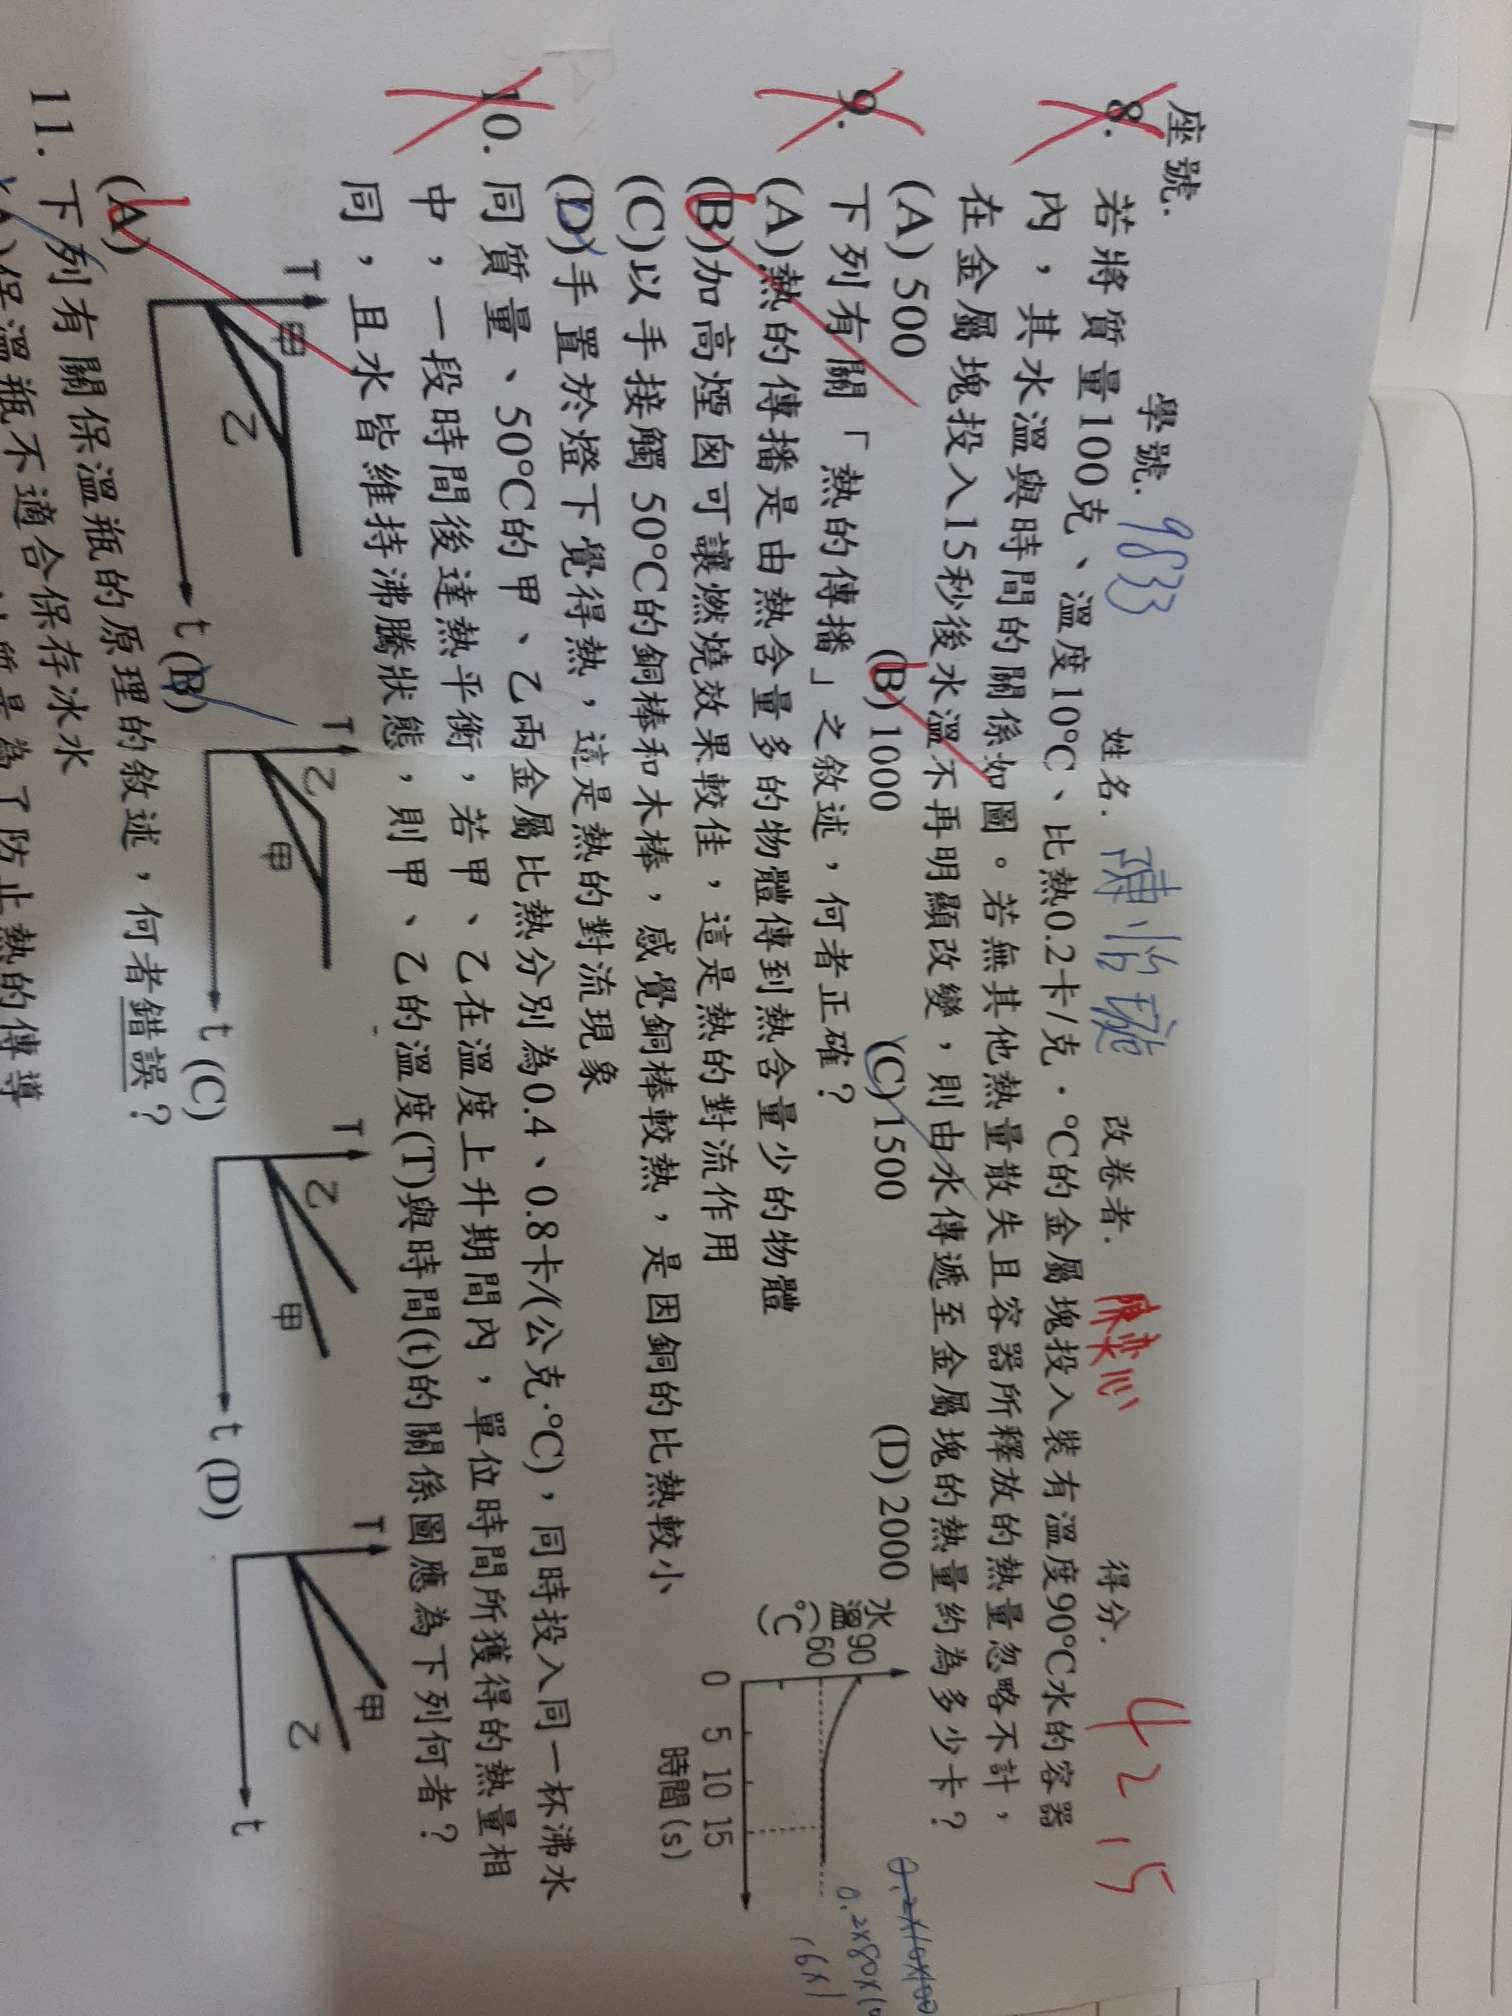 座號. 學號. 9833 姓名. 陳 改卷者. 陳 得分. 42.5
8. 若將質量100克、溫度10℃、比熱0.2卡/克·℃的金屬塊投入裝有溫度90℃水的容器
內，其水溫與時間的關係如圖。若無其他熱量散失且容器所釋放的熱量忽略不計，
在金屬塊投入15秒後水溫不再明顯改變，則由水傳遞至金屬塊的熱量約為多少卡？
(A) 500 (B) 1000 (C) 1500 (D) 2000
水溫(℃)
90
60
0 5 10 15
時間(s)
0.2×10×100
0.2×80×10
16×1
9. 下列有關「熱的傳播」之敘述，何者正確？
(A)熱的傳播是由熱含量多的物體傳到熱含量少的物體
(B)加高煙囪可讓燃燒效果較佳，這是熱的對流作用
(C)以手接觸 50℃的銅棒和木棒，感覺銅棒較熱，是因銅的比熱較小
(D)手置於燈下覺得熱，這是熱的對流現象
10. 同質量、50℃的甲、乙兩金屬比熱分別為0.4、0.8卡/(公克·℃)，同時投入同一杯沸水
中，一段時間後達熱平衡，若甲、乙在溫度上升期間內，單位時間所獲得的熱量相
同，且水皆維持沸騰狀態，則甲、乙的溫度(T)與時間(t)的關係圖應為下列何者？
(A) T 甲 乙 t (B) T 乙 甲 t (C) T 乙 甲 t (D) T 甲 乙 t
11. 下列有關保溫瓶的原理的敘述，何者錯誤？
(A)保溫瓶不適合保存冰水
質是為了防止熱的傳導